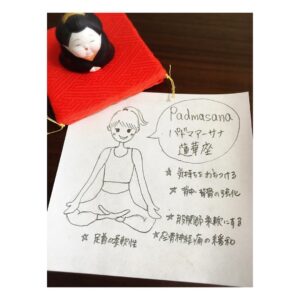 Padmasana
パドマアーサナ
蓮華座
☆ 気持ちをおちつける
☆ 背中・背骨の強化
☆ 股関節を柔軟にする
☆ 足首の柔軟性
☆ 座骨神経痛の緩和